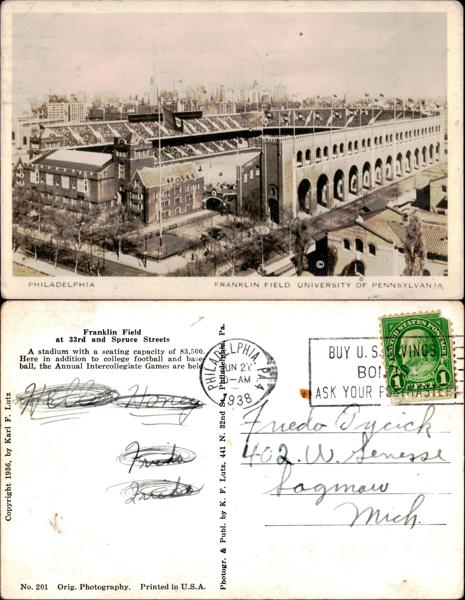 PHILADELPHIA
FRANKLIN FIELD, UNIVERSITY OF PENNSYLVANIA
©
Franklin Field
at 33rd and Spruce Streets
A stadium with a seating capacity of 83,500.
Here in addition to college football and base-
ball, the Annual Intercollegiate Games are held.
Hello Honey
Freda
Freda
Copyright 1936, by Karl F. Lutz
No. 201 Orig. Photography. Printed in U.S.A.
Photogr. & Publ. by K. F. Lutz, 441 N. 32nd St., Philadelphia, Pa.
PHILADELPHIA, PA.
JUN
-AM
1938
BUY U.S. SAVINGS
BONDS
ASK YOUR POSTMASTER
UNITED STATES
1 1
402 W. Genesse
Sagmow
Mich.